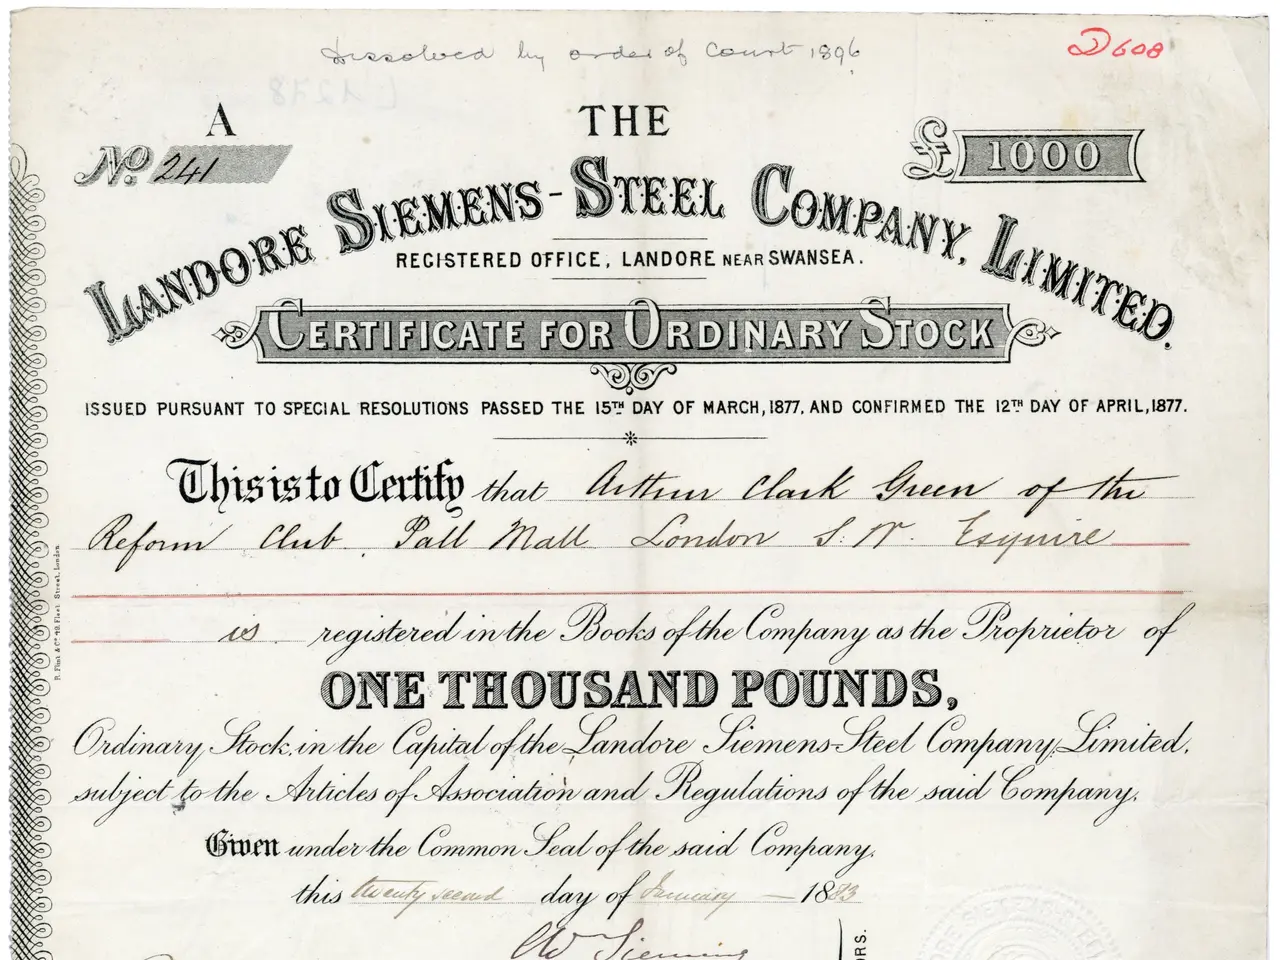 Dissolved by order of Court 1896
D608
A
No. 241
THE
£ 1000
LANDORE SIEMENS-STEEL COMPANY, LIMITED.
REGISTERED OFFICE, LANDORE NEAR SWANSEA.
CERTIFICATE FOR ORDINARY STOCK
ISSUED PURSUANT TO SPECIAL RESOLUTIONS PASSED THE 15TH DAY OF MARCH, 1877, AND CONFIRMED THE 12TH DAY OF APRIL, 1877.
This is to Certify that Arthur Clark Green of the
Reform Club, Pall Mall London S.W. Esquire
is registered in the Books of the Company as the Proprietor of
ONE THOUSAND POUNDS,
Ordinary Stock, in the Capital of the Landore Siemens-Steel Company, Limited,
subject to the Articles of Association and Regulations of the said Company.
Given under the Common Seal of the said Company,
this twenty second day of January 1883
Siemens